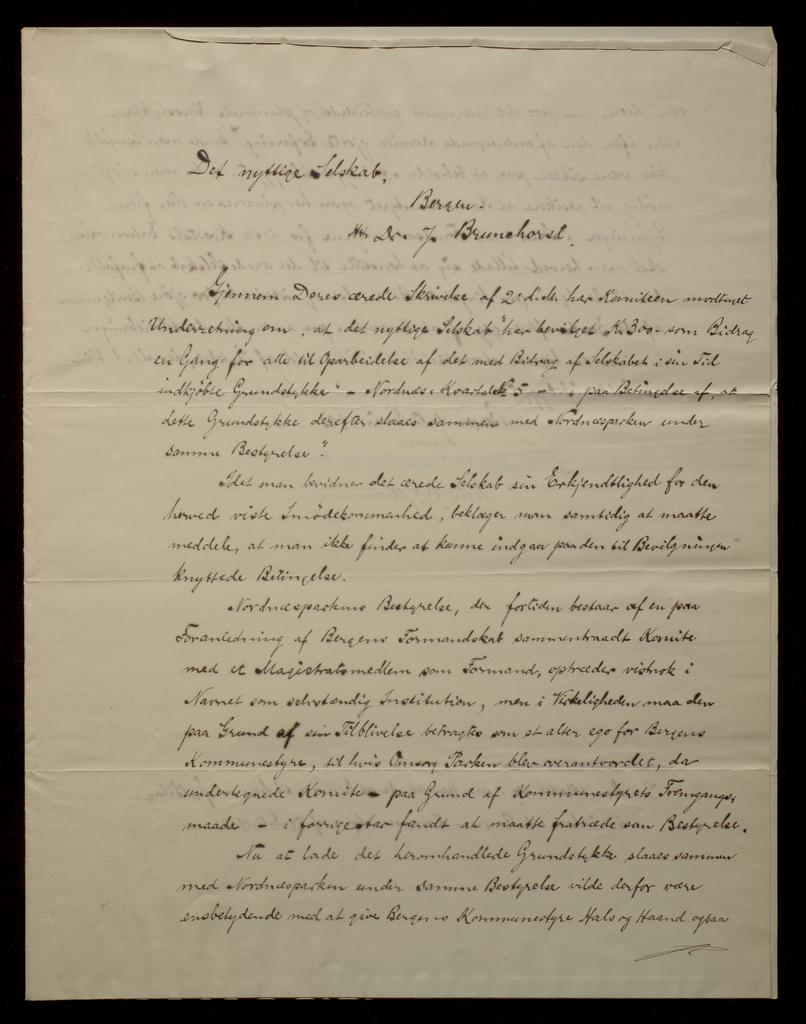 Det nyttige Selskab,
Bergen.
Hr. Dr. J. Brunchorst.
Gjennem Deres ærede Skrivelse af 2' d. M. har Komiteen modtaget
Underretning om, at det nyttige Selskab "har bevilget Kr. 300 - som Bidrag
en Gang for alle til Oparbeidelse af det med Bidrag af Selskabet i sin Tid
indkjøbte Grundstykke" - Nordnæs Kvartal № 5 - "paa Betingelse af, at
dette Grundstykke derefter slaaes sammen med Nordnæsparken under
samme Bestyrelse".
Idet man bevidner det ærede Selskab sin Erkjendtlighed for den
herved viste Imødekommenhed, beklager man samtidig at maatte
meddele, at man ikke finder at kunne indgaa paa den til Bevilgningen
knyttede Betingelse.
Nordnæsparkens Bestyrelse, der fortiden bestaar af en paa
Foranledning af Bergens Formandskab sammentraadt Komite
med et Magistratsmedlem som Formand, optræder vistnok i
Navnet som selvstændig Institution, men i Virkeligheden maa den
paa Grund af sin Tilblivelse betragtes som et alter ego for Bergens
Kommunestyre, til hvis Omsorg Parken blev overantvordet, da
undertegnede Komite - paa Grund af Kommunestyrets Fremgangs-
maade - i forrige Aar fandt at maatte fratræde som Bestyrelse.
Nu at lade det heromhandlede Grundstykke slaaes sammen
med Nordnæsparken under samme Bestyrelse vilde derfor være
ensbetydende med at give Bergens Kommunestyre Hals og Haand ogsaa